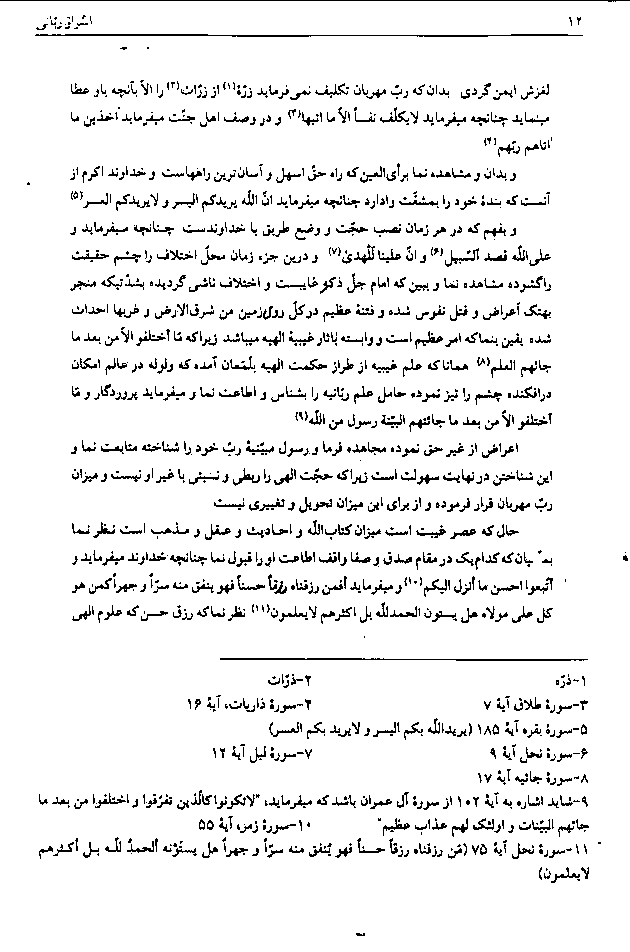 ۱۲ اشراق ربّانی
لغزش ایمن گردی بدان که ربّ مهربان تکلیف نمی‌فرماید زرّهٔ(۱) از زرّات(۲) را الاّ بآنچه باو عطا
مینماید چنانچه میفرماید لایکلّف نفـاً الاّ ما اتیها(۳) و در وصف اهل جنّت میفرماید آخذین ما
اتاهم ربّهم(۴)
و بدان و مشاهده نما برأی‌العین که راه حقّ اسهل و آسان‌ترین راههاست و خداوند اکرم از
آنست که بندهٔ خود را بمشقّت وادارد چنانچه میفرماید انّ اللّه یریدکم الیسر و لایریدکم العسر(۵)
و بفهم که در هر زمان نصب حجّت و وضع طریق با خداوندست چنانچه میفرماید و
علی‌اللّه قصد السّبیل(۶) و انّ علینا للّهدیٰ(۷) و درین جزء زمان محلّ اختلاف را چشم حقیقت
راگشوده مشاهده نما و ببین که امام جلّ ذکره غایبست و اختلاف ناشی گردیده بشدّتیکه منجر
بهتک اَعراض و قتل نفوس شده و فتنهٔ عظیم در کلّ روی‌زمین من شرق‌الارض و غربها احداث
شده یقین بنماکه امر عظیم است و وابسته بآثار غیبیهٔ الهیه میباشد زیراکه مّا اَختلفو الاّ من بعد ما
جائهم العلم(۸) همانا که علم غیبیه از طراز حکمت الهیه بلَمَعان آمده که ولوله در عالم امکان
درافکنده چشم را تیز نموده حامل علم ربّانیه را بشناس و اطاعت نما و میفرماید پروردگار و مّا
اَختلفو الاّ من بعد ما جائتهم البیّنة رسول من اللّه(۹)
اعراض از غیر حق نموده مجاهده فرما و رسول مبیّنیهٔ ربّ خود را شناخته متابعت نما و
این شناختن در نهایت سهولت است زیراکه حجّت الهی را ربطی و نسبتی با غیر او نیست و میزان
ربّ مهربان قرار فرموده و از برای این میزان تحویل و تغییری نیست
حال که عصر غیبت است میزان کتاب‌اللّه و احادیث و عقل و مذهب است نظر نما
که کدام‌یک در مقام صدق و صفا واقف اطاعت او را قبول نما چنانچه خداوند میفرماید و
اَتّبعوا احسن ما اُنزل الیکم(۱۰) و میفرماید اَفمن رزقناه رزقاً حسناً فهو ینفق منه سرّاً و جهراً کمن هو
کل علی مولاه هل یستون الحمدللّه بل اکثرهم لایعلمون(۱۱) نظر نما که رزق حسن که علوم الهی
۱-ذرّه ۲-ذرّات
۳-سورهٔ طلاق آیهٔ ۷ ۴-سورهٔ ذاریات، آیهٔ ۱۶
۵-سورهٔ بقره آیهٔ ۱۸۵ (یریداللّه بکم الیسر و لایرید بکم العسر)
۶-سورهٔ نحل آیهٔ ۹ ۷-سورهٔ لیل آیهٔ ۱۲
۸-سورهٔ جاثیه آیهٔ ۱۷
۹-شاید اشاره به آیهٔ ۱۰۲ از سورهٔ آل عمران باشد که میفرماید، "لاتکونوا کالّذین تفرّقوا و اختلفوا من بعد ما
جائهم البیّنات و اولئک لهم عذاب عظیم" ۱۰-سورهٔ زمر، آیهٔ ۵۵
۱۱-سورهٔ نحل آیهٔ ۷۵ (مَن رزقناه رزقاً حسناً فهو یُنفق منه سرّاً و جهراً هل یستوُنه الحمدُ للّه بـل أکثرهم
لایعلمون)